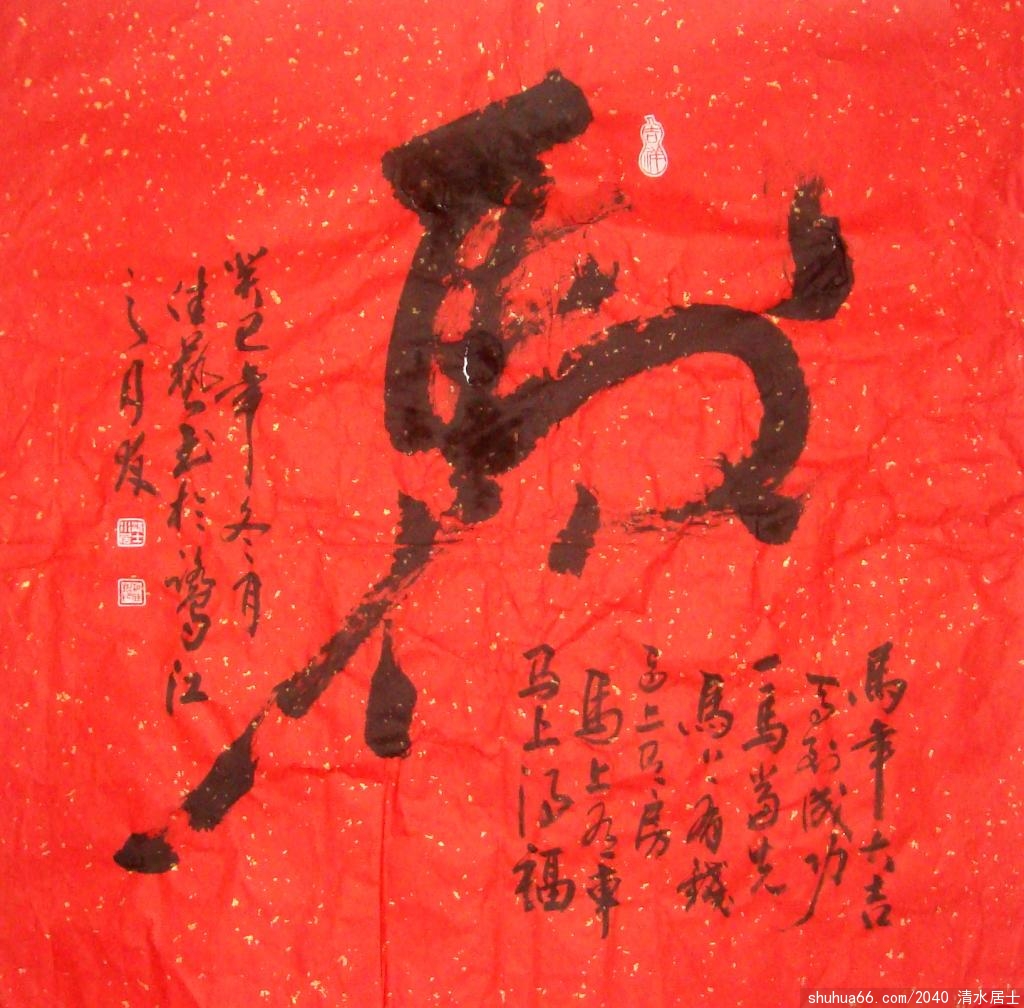 馬
吉祥
馬年大吉
马到成功
一馬當先
馬上有錢
马上有房
馬上有車
马上得福
癸巳年冬月
佳藝书於鹭江
shuhua66.com/2040 清水居士